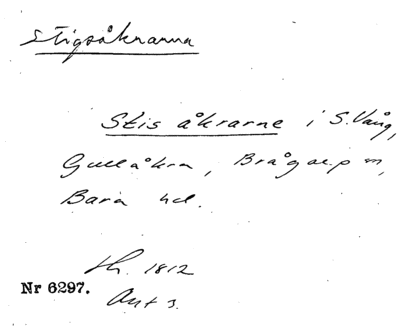 Stigsåkrarna
Stis åkrarne i S. Vång,
Gullåkra, Brågarp sn,
Bara hd.
sh. 1812
Nr 6297.
Akt 3.